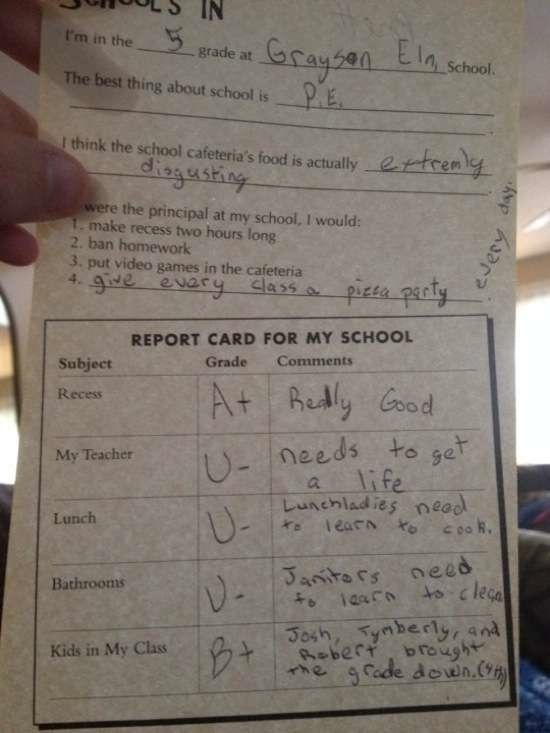 SCHOOL'S IN
I'm in the 5 grade at Grayson Elm. School.
The best thing about school is P.E.
.
I think the school cafeteria's food is actually extremly
disgusting.
were the principal at my school, I would:
1. make recess two hours long
2. ban homework
3. put video games in the cafeteria
4. give every class a pizza party.
every day.
REPORT CARD FOR MY SCHOOL
Subject Grade Comments
Recess A+ Really Good
My Teacher U- needs to get
a life
Lunch U- Lunchladies need
to learn to cook.
Bathrooms U- Janitors need
to learn to clean
Kids in My Class B+ Josh, Tymberly, and
Robert brought
the grade down. (4th)